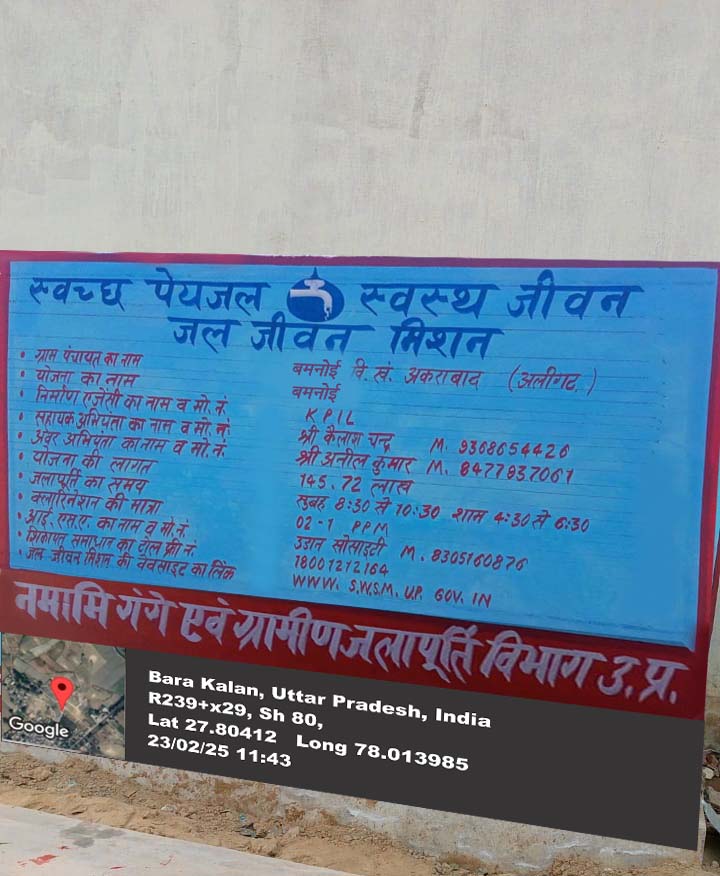 स्वच्छ पेयजल स्वस्थ जीवन
जल जीवन मिशन
• ग्राम पंचायत का नाम बमनोई वि. खं. अकराबाद (अलीगढ़)
• योजना का नाम बमनोई
• निर्माण एजेंसी का नाम व मो. नं. KPIL
• सहायक अभियंता का नाम व मो. नं. श्री कैलाश चन्द्र M. 9368654426
• अवर अभियंता का नाम व मो. नं. श्री अनील कुमार M. 8477937061
• योजना की लागत 145.72 लाख
• जलापूर्ति का समय सुबह 8:30 से 10:30 शाम 4:30 से 6:30
• क्लोरिनेशन की मात्रा 02-1 PPM
• आई. एस. ए. का नाम व मो. नं. उडान सोसाइटी M. 8305160876
• शिकायत समाधान का टोल फ्री नं. 18001212164
• जल जीवन मिशन की वेबसाइट का लिंक WWW. S.W.S.M. U.P. GOV. IN
नमामि गंगे एवं ग्रामीण जलापूर्ति विभाग उ.प्र.
Google
Bara Kalan, Uttar Pradesh, India
R239+x29, Sh 80,
Lat 27.80412 Long 78.013985
23/02/25 11:43